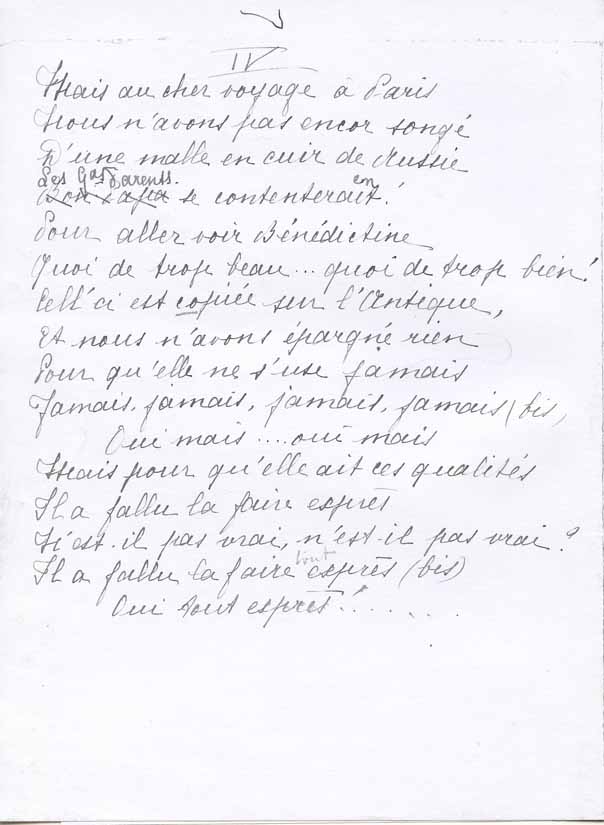 IV
Mais au cher voyage à Paris
Nous n'avons pas encor songé
D'une malle en cuir de Russie
Les Gds Parents.
Bon Papa se contenterait en!
Pour aller voir Bénédictine
Quoi de trop beau... quoi de trop bien!
Cell'ci est copiée sur l'Antique,
Et nous n'avons épargné rien
Pour qu'elle ne s'use jamais
Jamais, jamais, jamais, jamais (bis)
Oui mais .... oui mais
Mais pour qu'elle ait ces qualités
Il a fallu la faire exprès
N'est-il pas vrai, n'est-il pas vrai?
tout
Il a fallu la faire exprès (bis)
Oui tout exprès! ......